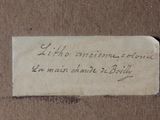 Litho ancienne coloriée
La main chaude de Boilly